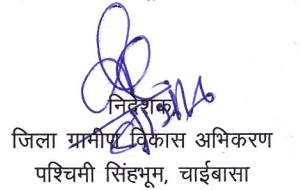 निदेशक,
जिला ग्रामीण विकास अभिकरण
पश्चिमी सिंहभूम, चाईबासा